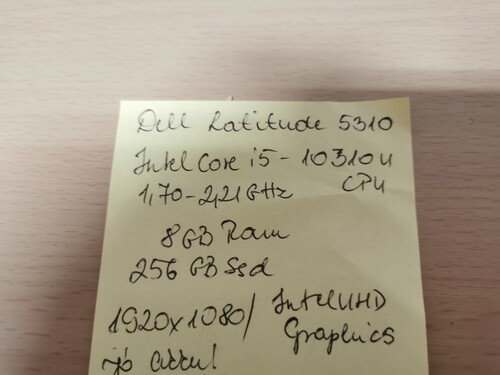 Dell Latitude 5310
Intel Core i5-10310u
1,70-2,21 GHz CPU
8GB Ram
256 GB Ssd
1920x1080/ Intel UHD
Graphics
jó akku!